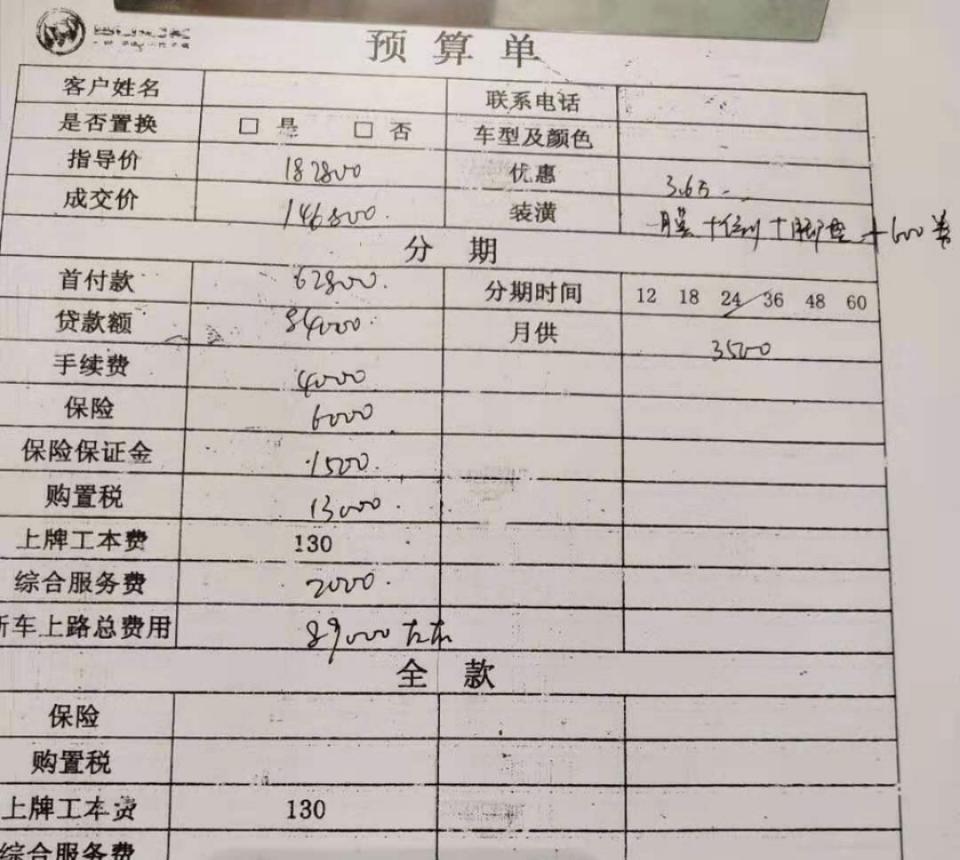 预算单
客户姓名 联系电话
是否置换 □ 是 □ 否 车型及颜色
指导价 182800 优惠 3.6万
成交价 146800. 装潢 膜+ +脚垫+600
分 期
首付款 62800. 分期时间 12 18 24 36 48 60
贷款额 84000. 月供 3500
手续费 4000
保险 6000
保险保证金 1500.
购置税 13000.
上牌工本费 130
综合服务费 2000.
车上路总费用 89000左右
全 款
保险
购置税
上牌工本费 130
综合服务费